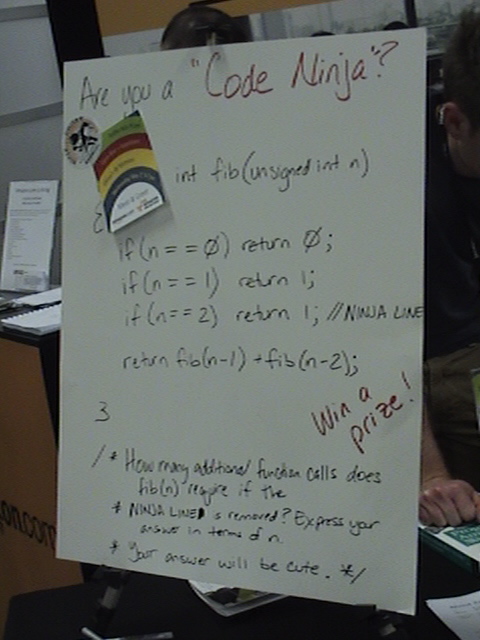 Are you a "Code Ninja"?
int fib(unsigned int n)
{
if(n==0) return 0;
if(n==1) return 1;
if(n==2) return 1; //NINJA LINE
return fib(n-1)+fib(n-2);
}
Win a
prize!
/* How many additional function calls does
fib(n) require if the
* NINJA LINE is removed? Express your
answer in terms of n.
* Your answer will be cute. */
on.com